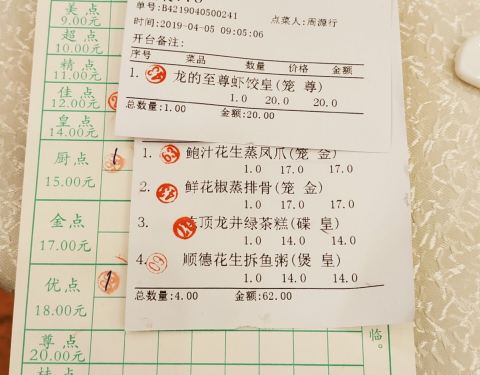 美点
9.00元
超点
10.00元
精点
11.00元
佳点
12.00元
皇点
14.00元
厨点
15.00元
1
金点
17.00元
优点
18.00元
1
尊点
20.00元
单号:B4219040500241
点菜人:周源行
时间:2019-04-05 09:05:06
开台备注:
序号 菜品 数量 价格 金额
1. 龙的至尊虾饺皇(笼 尊)
1.0 20.0 20.0
总数量:1.00 金额:20.00
1. 鲍汁花生蒸凤爪(笼 金)
1.0 17.0 17.0
2. 鲜花椒蒸排骨(笼 金)
1.0 17.0 17.0
3. 顶龙井绿茶糕(碟 皇)
1.0 14.0 14.0
4. 顺德花生拆鱼粥(煲 皇)
1.0 14.0 14.0
总数量:4.00 金额:62.00
临。